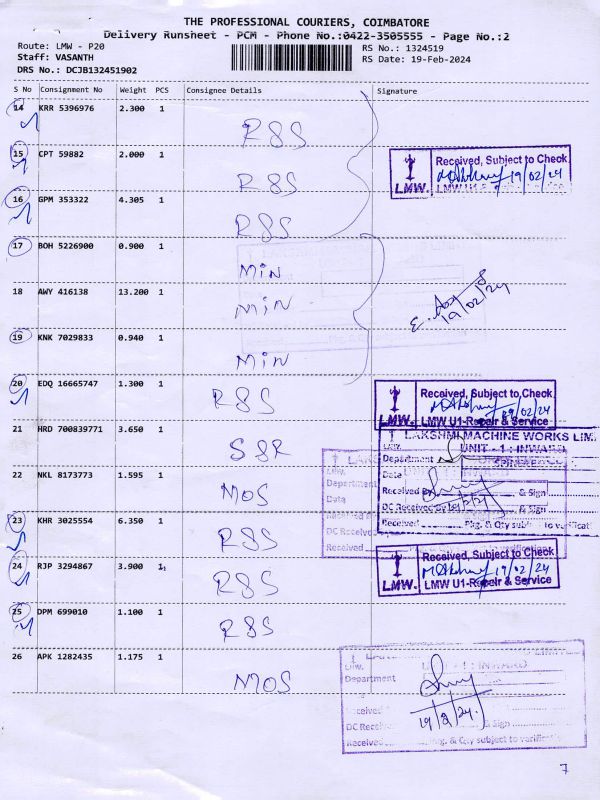 THE PROFESSIONAL COURIERS, COIMBATORE
Delivery Runsheet - PCM - Phone No.:0422-3505555 - Page No.:2
Route: LMW - P20
RS No.: 1324519
Staff: VASANTH
RS Date: 19-Feb-2024
DRS No.: DCJB132451902
S No Consignment No Weight PCS Consignee Details Signature
14 KRR 5396976 2.300 1
R&S
15 CPT 59882 2.000 1
R&S
Received, Subject to Check
19/02/24
LMW. LMW U1
16 GPM 353322 4.305 1
R&S
17 BOH 5226900 0.900 1
MIN
18 AWY 416138 13.200 1
MIN
19/02/24
19 KNK 7029833 0.940 1
MIN
20 EDQ 16665747 1.300 1
R&S
Received, Subject to Check
19/02/24
LMW. LMW U1-Repair & Service
21 HRD 700839771 3.650 1
S&R
LAKSHMI MACHINE WORKS LIM
UNIT - 1 : INWARD
Department
Date
Received By & Sign
DC Received by & Sign
Received Pkg. & Qty subject to verificati
22 NKL 8173773 1.595 1
MOS
Department
Data
DC Received
Received
23 KHR 3025554 6.350 1
R&S
24 RJP 3294867 3.900 1
R&S
Received, Subject to Check
19/02/24
LMW. LMW U1-Repair & Service
25 DPM 699010 1.100 1
R&S
26 APK 1282435 1.175 1
MOS
UNIT - 1 : INWARD
Department
Received
19/2/24.
DC Receive & Sign
Received Pkg. & Qty subject to verificati
7